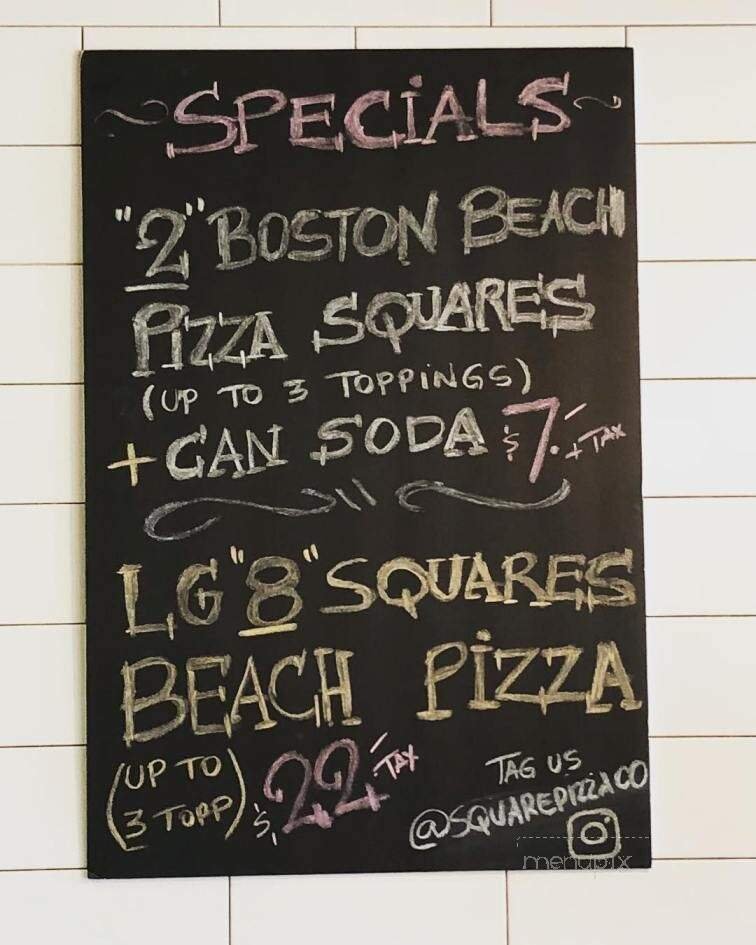 SPECIALS
"2" BOSTON BEACH
PIZZA SQUARES
(UP TO 3 TOPPINGS)
+ CAN SODA $7.- + TAX
LG "8" SQUARES
BEACH PIZZA
(UP TO
3 TOPP) $22.- TAX
TAG US
@SQUAREPIZZACO
menupix